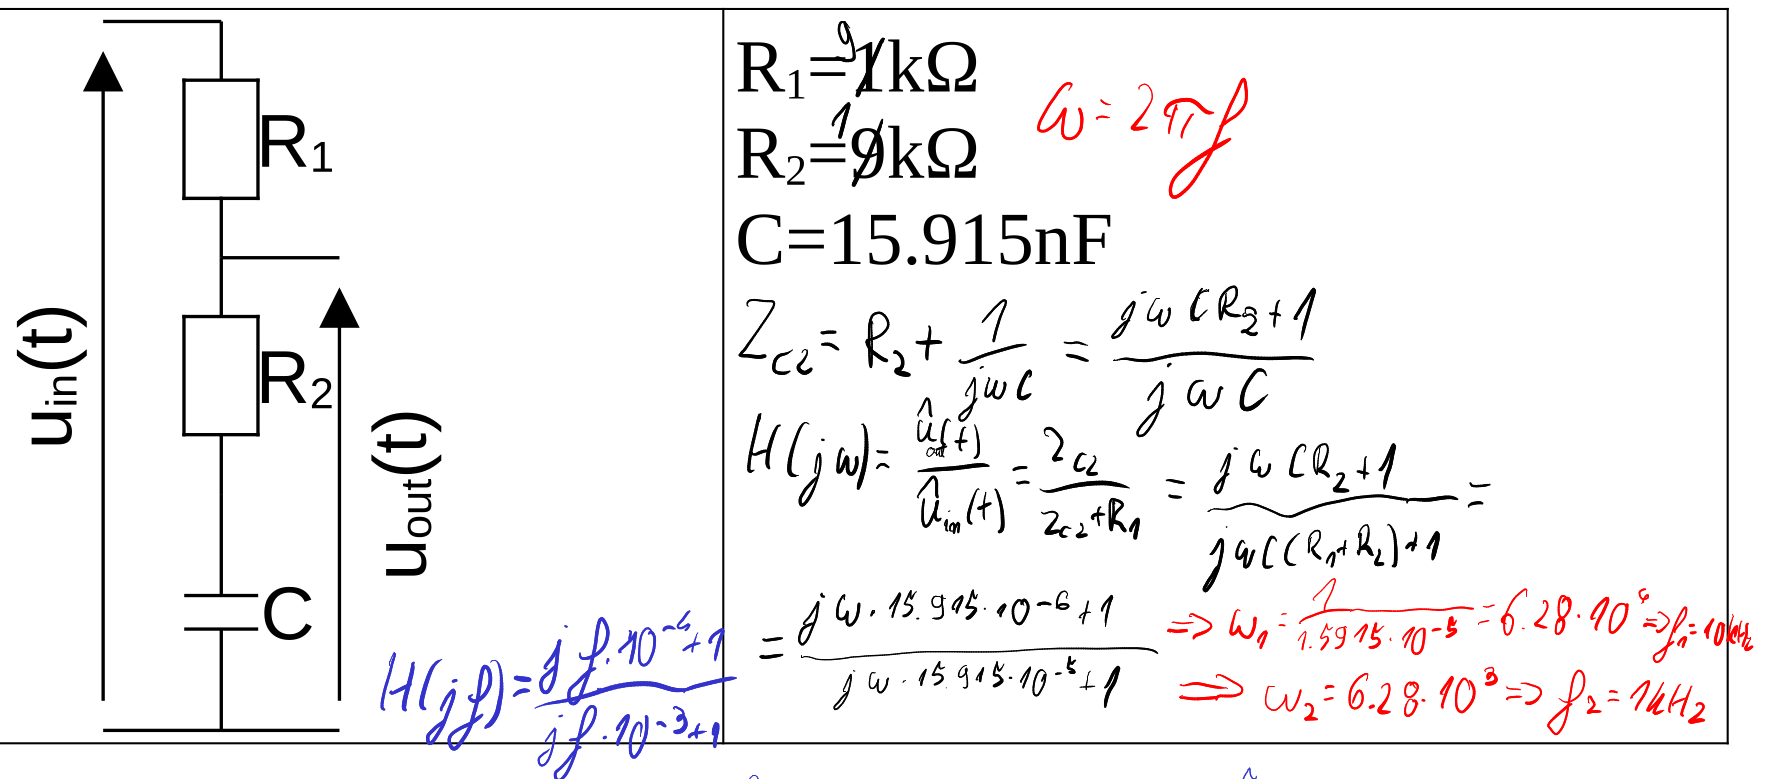 R₁
R₂
C
uᵢₙ(t)
uₒᵤₜ(t)
R₁=9 1kΩ
R₂=1 9kΩ
C=15.915nF
ω = 2πf
Z_{C2} = R₂ + 1/(jωC) = (jωCR₂+1)/(jωC)
H(jω) = û_{out}(t)/û_{in}(t) = Z_{C2}/(Z_{C2}+R₁) = (jωCR₂+1)/(jωC(R₁+R₂)+1) =
= (jω·15.915·10⁻⁶+1)/(jω·15.915·10⁻⁵+1)
=> ω₁ = 1/(1.5915·10⁻⁵) = 6.28·10⁴ => f₁ = 10kHz
=> ω₂ = 6.28·10³ => f₂ = 1kHz
H(jf) = (jf·10⁻⁴+1)/(jf·10⁻³+1)